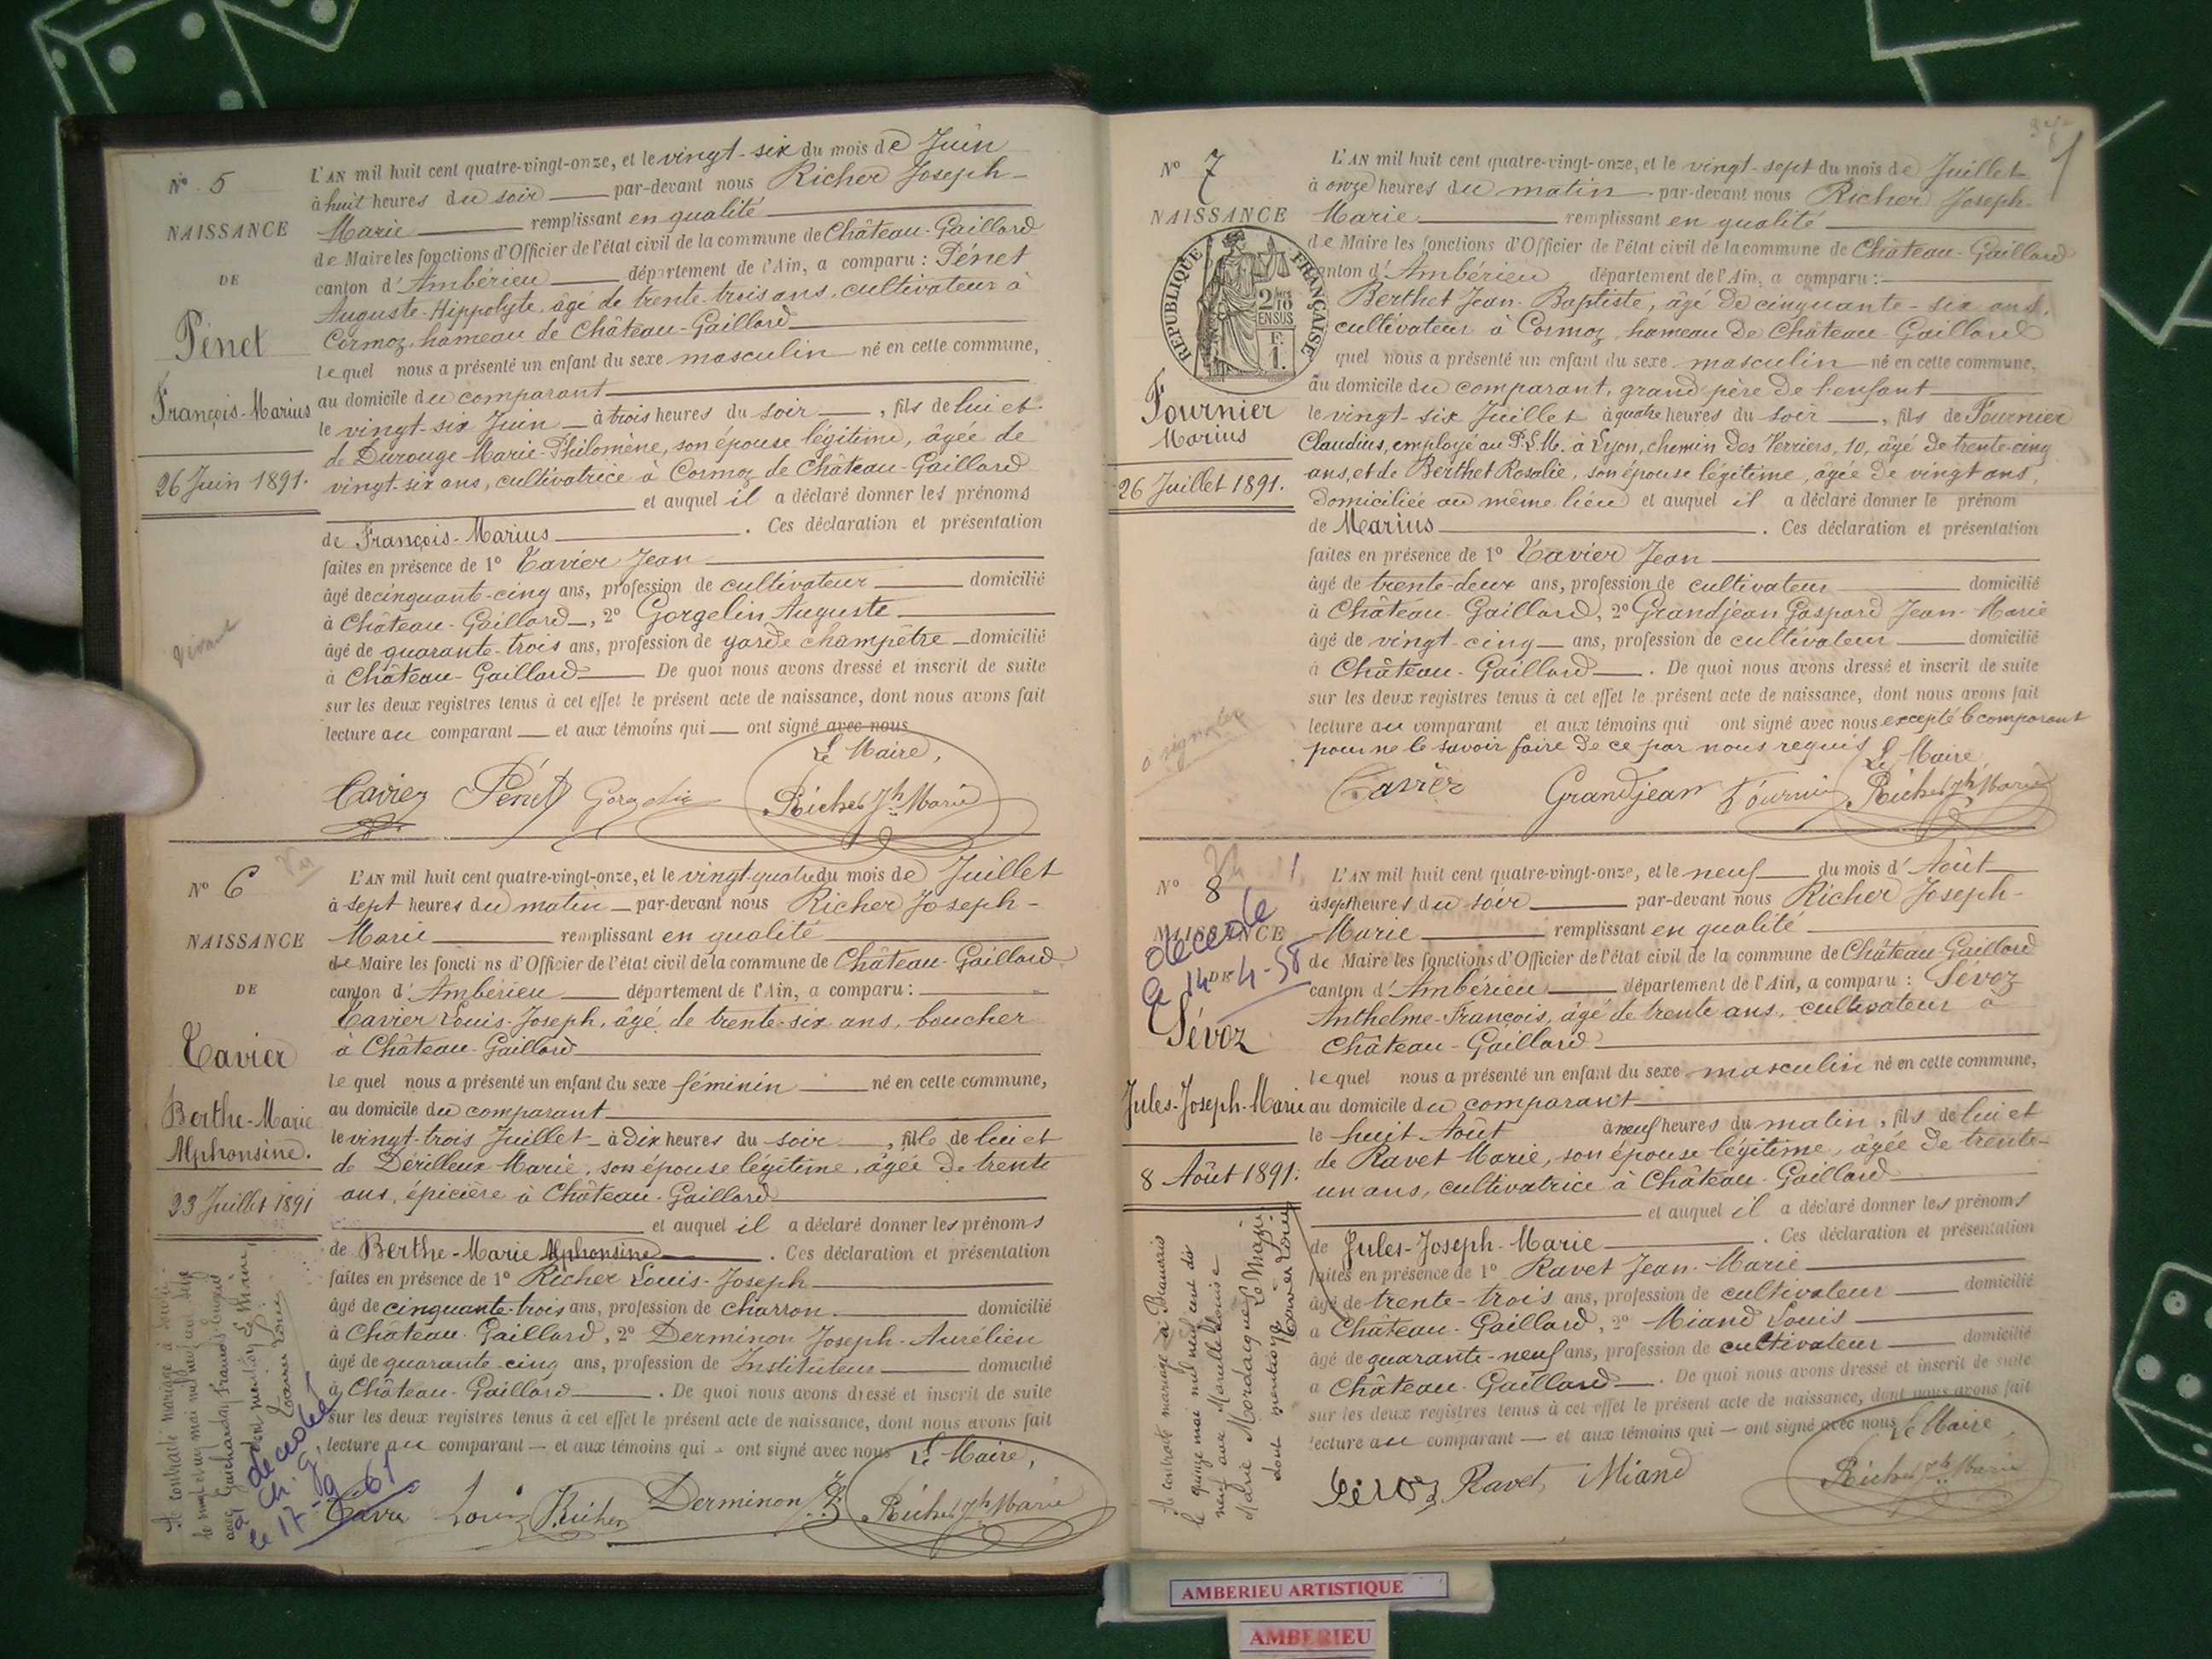 Nº 5
NAISSANCE
DE
Pénet
François-Marius
26 Juin 1891.
L'AN mil huit cent quatre-vingt-onze, et le vingt-six du mois de Juin
à huit heures du soir par-devant nous Richer Joseph-
Marie remplissant en qualité
de Maire les fonctions d'Officier de l'état civil de la commune de Château-Gaillard
canton d'Ambérieu département de l'Ain, a comparu : Pénet
Auguste-Hippolyte, âgé de trente-trois ans, cultivateur à
Cormoz, hameau de Château-Gaillard
lequel nous a présenté un enfant du sexe masculin né en cette commune,
au domicile du comparant
le vingt-six Juin à trois heures du soir , fils de lui et
de Durouge Marie-Philomène, son épouse légitime, âgée de
vingt-six ans, cultivatrice à Cormoz de Château-Gaillard
et auquel il a déclaré donner les prénoms
de François-Marius . Ces déclaration et présentation
faites en présence de 1º Tavier Jean
âgé de cinquante-cinq ans, profession de cultivateur domicilié
à Château-Gaillard , 2º Gorgelin Auguste
âgé de quarante-trois ans, profession de garde champêtre domicilié
à Château-Gaillard De quoi nous avons dressé et inscrit de suite
sur les deux registres tenus à cet effet le présent acte de naissance, dont nous avons fait
lecture au comparant et aux témoins qui ont signé avec nous
Le Maire,
Tavier Pénet Gorgelin Richer Jh Marie
Nº 6
NAISSANCE
DE
Tavier
Berthe-Marie
Alphonsine.
23 Juillet 1891
L'AN mil huit cent quatre-vingt-onze, et le vingt-quatre du mois de Juillet
à sept heures du matin par-devant nous Richer Joseph-
Marie remplissant en qualité
de Maire les foncti ns d'Officier de l'état civil de la commune de Château-Gaillard
canton d'Ambérieu département de l'Ain, a comparu :
Tavier Louis-Joseph, âgé de trente-six ans, boucher
à Château-Gaillard
lequel nous a présenté un enfant du sexe féminin né en cette commune,
au domicile du comparant
le vingt-trois Juillet à dix heures du soir , fille de lui et
de Dérilleux Marie, son épouse légitime, âgée de trente
ans, épicière à Château-Gaillard
et auquel il a déclaré donner les prénoms
de Berthe-Marie Alphonsine . Ces déclaration et présentation
faites en présence de 1º Richer Louis-Joseph
âgé de cinquante-trois ans, profession de charron. domicilié
à Château-Gaillard, 2º Derminon Joseph-Aurélien
âgé de quarante-cinq ans, profession de Instituteur domicilié
à Château-Gaillard . De quoi nous avons dressé et inscrit de suite
sur les deux registres tenus à cet effet le présent acte de naissance, dont nous avons fait
lecture au comparant et aux témoins qui ont signé avec nous
Le Maire,
Louis Richer Derminon Richer Jh Marie
A contracté mariage à
décédée
le 17-9-61
Nº 7
NAISSANCE
RÉPUBLIQUE FRANÇAISE
2/10 EN SUS
F. 1.
Fournier
Marius
26 Juillet 1891.
L'AN mil huit cent quatre-vingt-onze, et le vingt-sept du mois de Juillet
à onze heures du matin par-devant nous Richer Joseph-
Marie remplissant en qualité
de Maire les fonctions d'Officier de l'état civil de la commune de Château-Gaillard
canton d'Ambérieu département de l'Ain, a comparu :
Berthet Jean-Baptiste, âgé de cinquante-six ans,
cultivateur à Cormoz, hameau de Château-Gaillard
quel nous a présenté un enfant du sexe masculin né en cette commune,
au domicile du comparant, grand père de l'enfant
le vingt-six Juillet à quatre heures du soir , fils de Fournier
Claudius, employé au P.L.M. à Lyon, chemin des Verriers, 10, âgé de trente-cinq
ans, et de Berthet Rosalie, son épouse légitime, âgée de vingt ans,
domiciliée au même lieu et auquel il a déclaré donner le prénom
de Marius . Ces déclaration et présentation
faites en présence de 1º Tavier Jean
âgé de trente-deux ans, profession de cultivateur domicilié
à Château-Gaillard, 2º Grandjean Gaspard Jean-Marie
âgé de vingt-cinq ans, profession de cultivateur domicilié
à Château-Gaillard . De quoi nous avons dressé et inscrit de suite
sur les deux registres tenus à cet effet le présent acte de naissance, dont nous avons fait
lecture au comparant et aux témoins qui ont signé avec nous excepté le comparant
pour ne le savoir faire de ce par nous requis
Le Maire
Tavier Grandjean Fournier Richer Jh Marie
Nº 8
NAISSANCE
DE
décédé
le 14-4-58
Sévoz
Jules-Joseph-Marie
8 Août 1891.
L'AN mil huit cent quatre-vingt-onze, et le neuf du mois d'Août
à sept heures du soir par-devant nous Richer Joseph-
Marie remplissant en qualité
de Maire les fonctions d'Officier de l'état civil de la commune de Château-Gaillard
canton d'Ambérieu département de l'Ain, a comparu : Sévoz
Anthelme-François, âgé de trente ans, cultivateur à
Château-Gaillard
lequel nous a présenté un enfant du sexe masculin né en cette commune,
au domicile du comparant
le huit Août à neuf heures du matin, fils de lui et
de Ravet Marie, son épouse légitime, âgée de trente-
un ans, cultivatrice à Château-Gaillard
et auquel il a déclaré donner les prénoms
de Jules-Joseph-Marie . Ces déclaration et présentation
faites en présence de 1º Ravet Jean-Marie
âgé de trente-trois ans, profession de cultivateur domicilié
à Château-Gaillard, 2º Miand Louis
âgé de quarante-neuf ans, profession de cultivateur domicilié
à Château-Gaillard . De quoi nous avons dressé et inscrit de suite
sur les deux registres tenus à cet effet le présent acte de naissance, dont nous avons fait
lecture au comparant et aux témoins qui ont signé avec nous
Le Maire
Sévoz Ravet Miand Richer Jh Marie
A contracté mariage à Beauvais
le quinze mai mil neuf cent dix
neuf avec
dont mention
AMBERIEU ARTISTIQUE
AMBERIEU